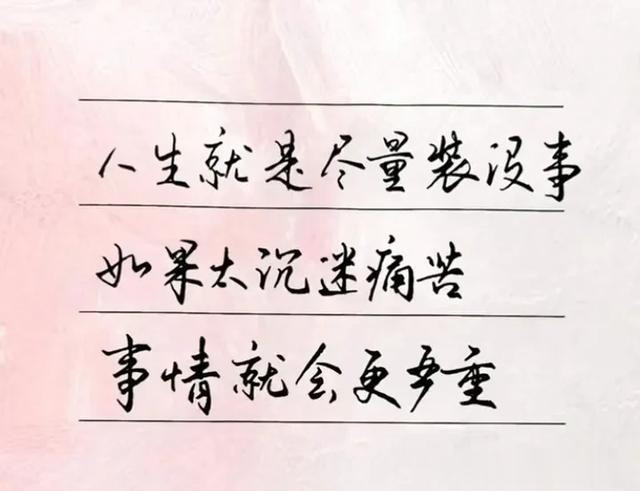 人生就是尽量装没事
如果太沉迷痛苦
事情就会更严重